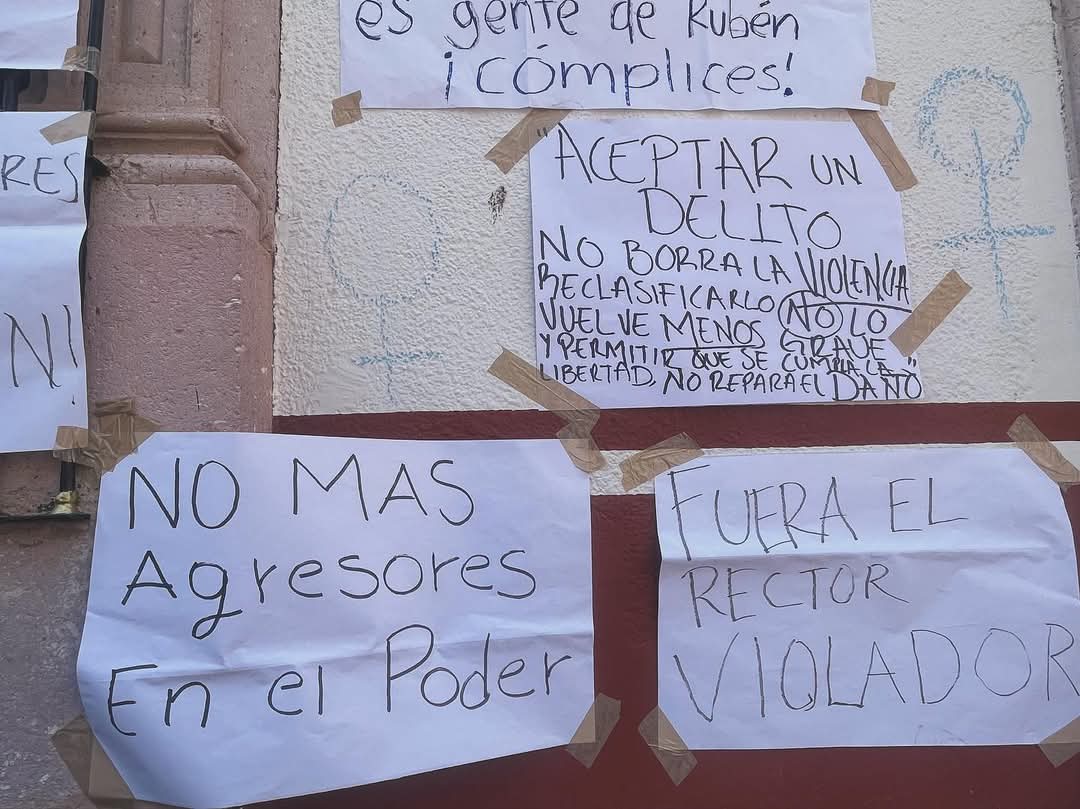 es gente de Rubén
¡cómplices!
RES
N!
"ACEPTAR UN
DELITO
NO BORRA LA VIOLENCIA
RECLASIFICARLO NO LO
VUELVE MENOS GRAVE
Y PERMITIR QUE SE CUMPLA LA
LIBERTAD, NO REPARA EL DAÑO"
NO MAS
Agresores
En el Poder
FUERA EL
RECTOR
VIOLADOR